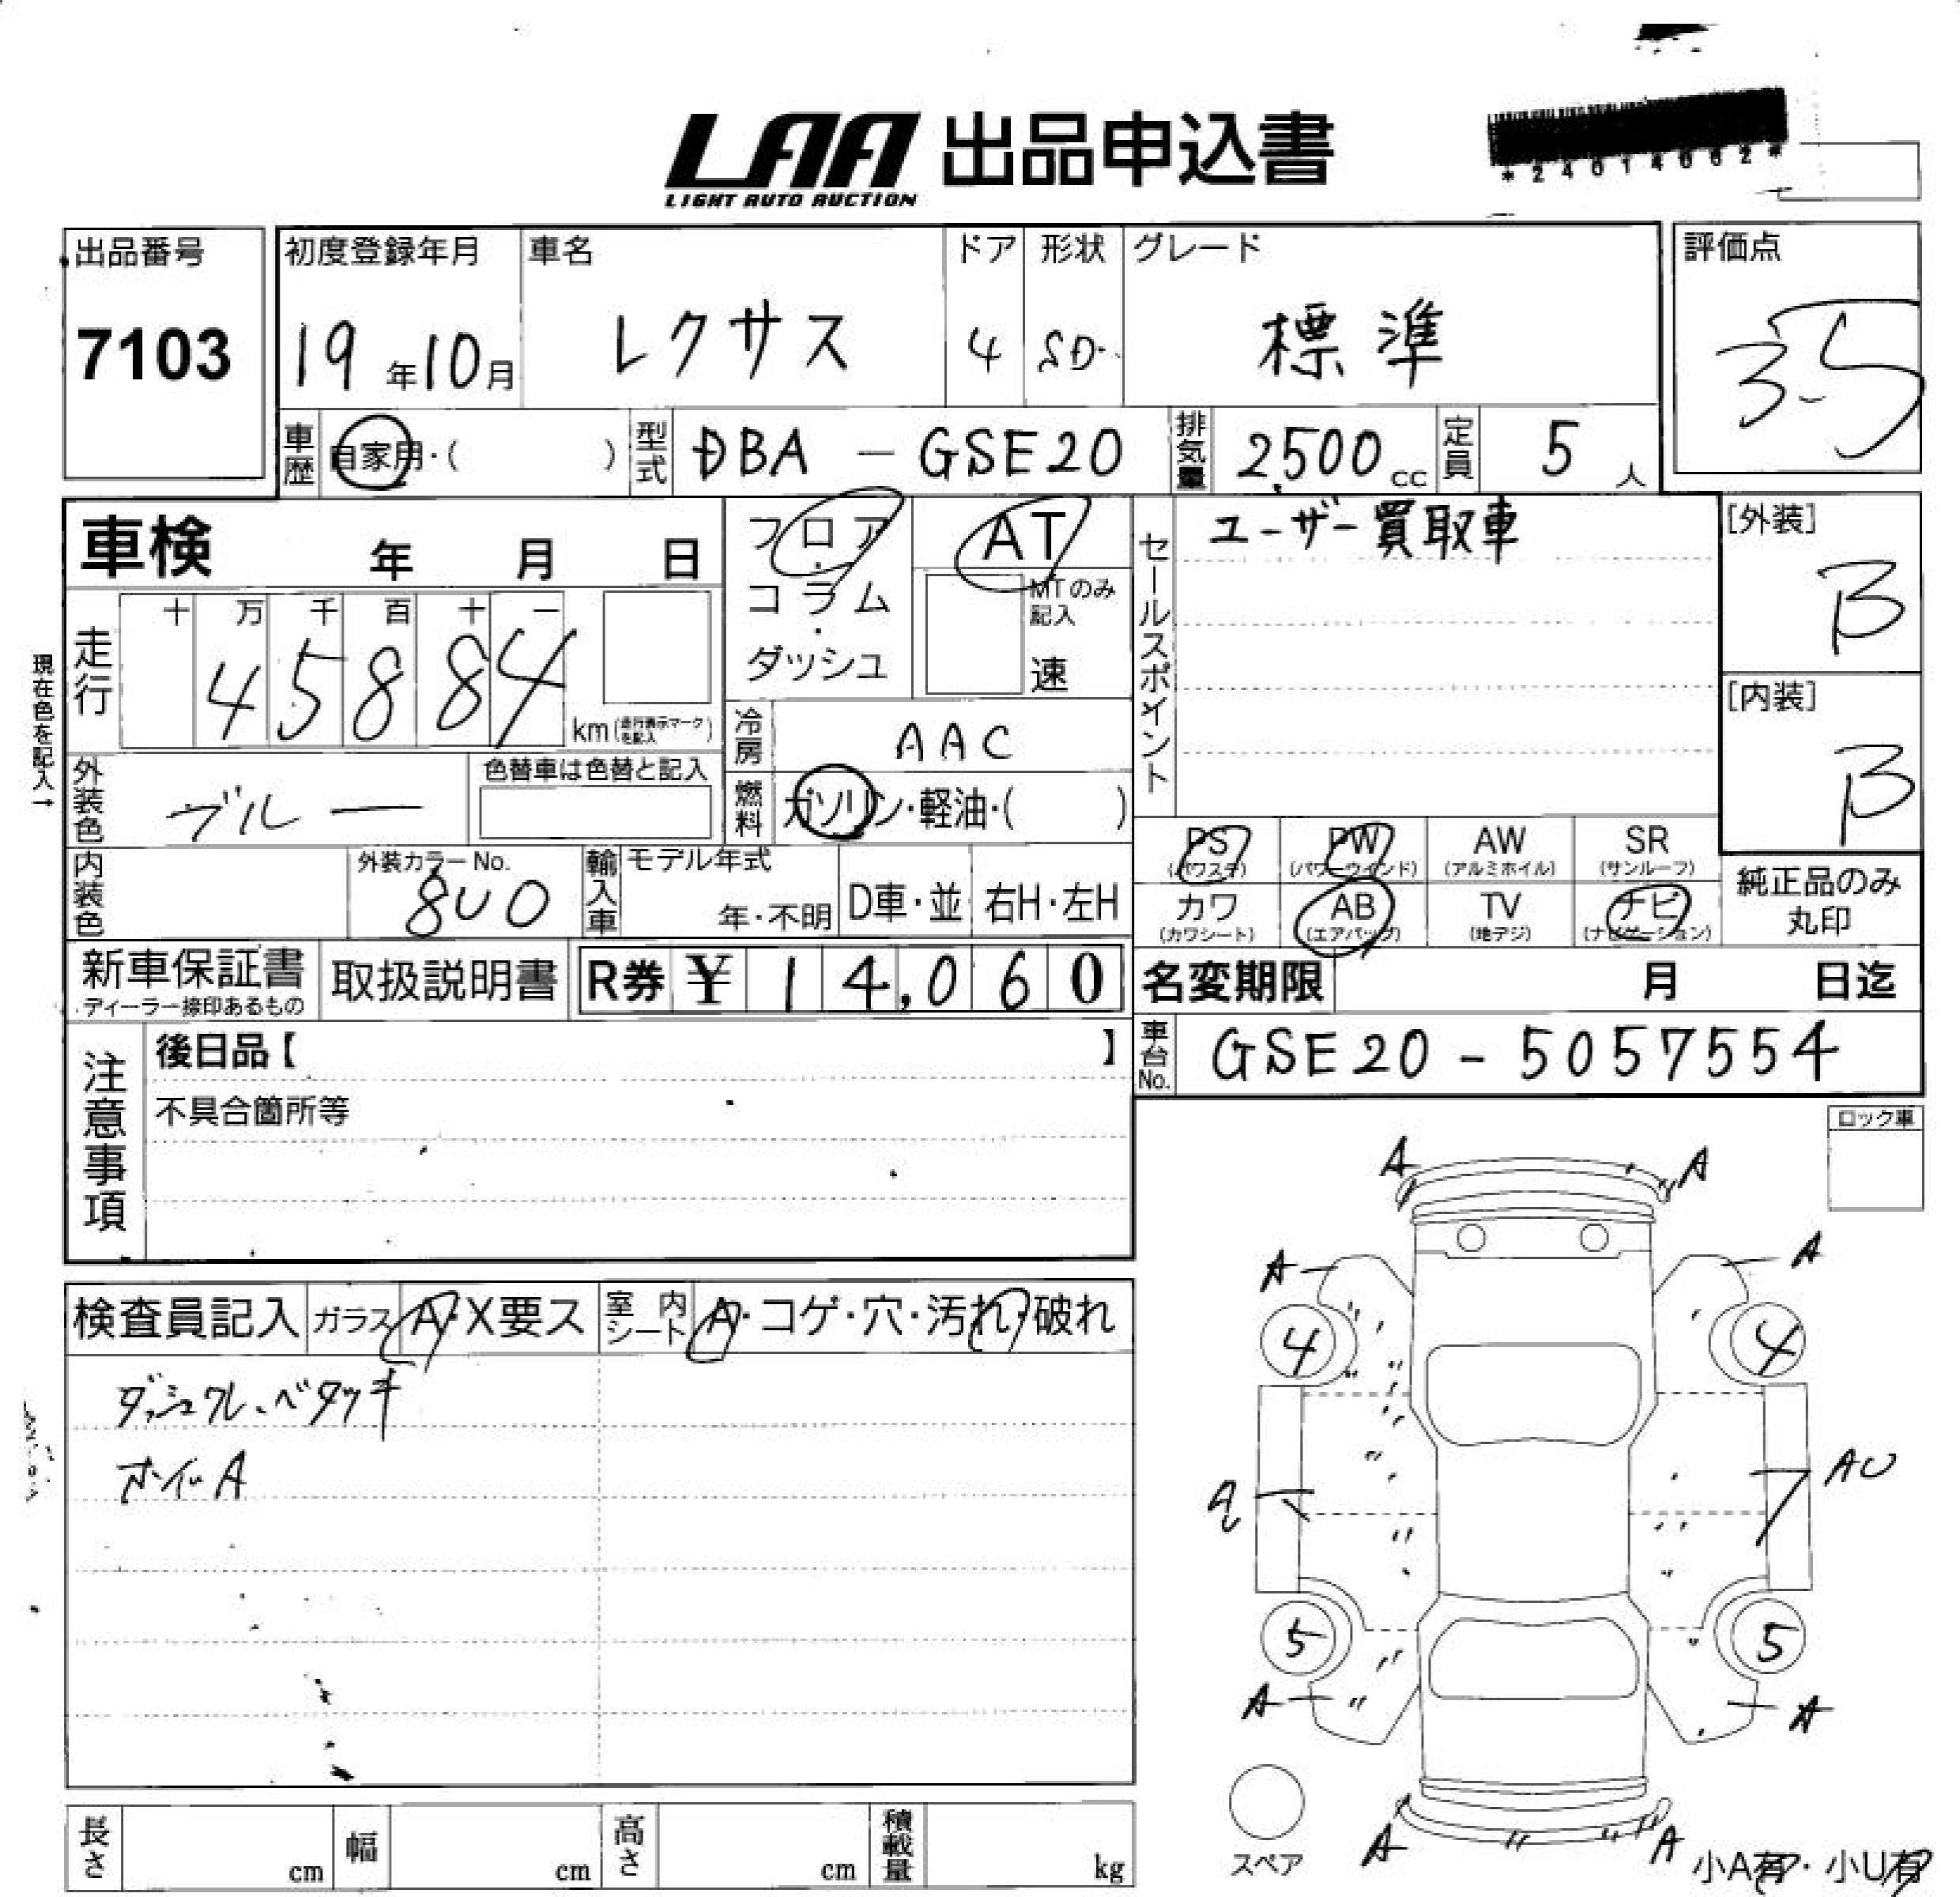 LAA 出品申込書
LIGHT AUTO AUCTION
*24014062*
出品番号 初度登録年月 車名 ドア 形状 グレード 評価点
7103 19年10月 レクサス 4 SD 標準 3.5
車歴 自家用・( ) 型式 DBA - GSE20 排気量 2,500cc 定員 5人
車検 年 月 日
フロア・コラム・ダッシュ
AT
MTのみ記入
速
セールスポイント ユーザー買取車
[外装] B
現在色を記入→
走行 十 万 千 百 十 一
4 5 8 8 4
km(走行表示マークを記入)
[内装] B
冷房 AAC
外装色 ブルー 色替車は色替と記入
燃料 ガソリン・軽油・( )
PS (パワステ) PW (パワーウインド) AW (アルミホイル) SR (サンルーフ)
内装色 外装カラーNo. 8U0
輸入車 モデル年式 年・不明 D車・並 右H・左H
カワ (カワシート) AB (エアバッグ) TV (地デジ) ナビ (ナビゲーション)
純正品のみ丸印
新車保証書 取扱説明書 R券 ¥ 14,060
・ディーラー捺印あるもの
名変期限 月 日迄
注意事項
後日品【 】
車台No. GSE20 - 5057554
不具合箇所等
ロック車
検査員記入 ガラス A・X要ス 室内シート A・コゲ・穴・汚れ・破れ
ダッシュワレ、ベタツキ
ホイールA
A A
A A
4 4
AU
5 5
A A
スペア
A A
小A有・小U有
長さ cm 幅 cm 高さ cm 積載量 kg